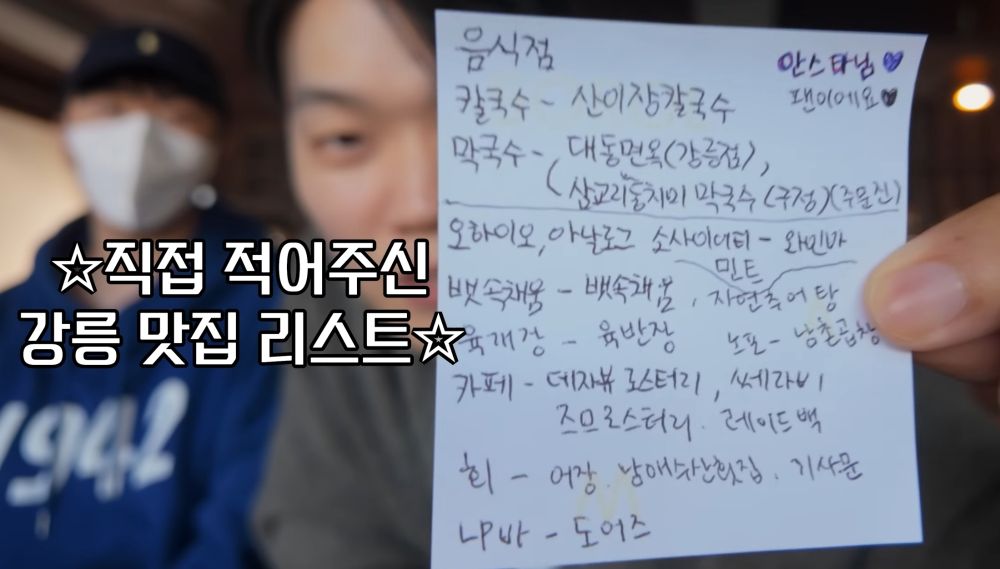 음식점
안스타님
팬이에요
칼국수 - 산이장칼국수
막국수 - 대동면옥(강릉점),
(삼교리동치미 막국수 (구정)(주문진)
오하이오, 아날로그 소사이어티 - 와인바
민트
뱃속채움 - 뱃속채움, 자연추어탕
육개장 - 육반장 노포 - 남촌곱창
카페 - 데자뷰 로스터리, 쎄라비
즈므로스터리. 레이드백
회 - 어장. 남애수산횟집. 기사문
LP바 - 도어즈
☆직접 적어주신
강릉 맛집 리스트☆
1942